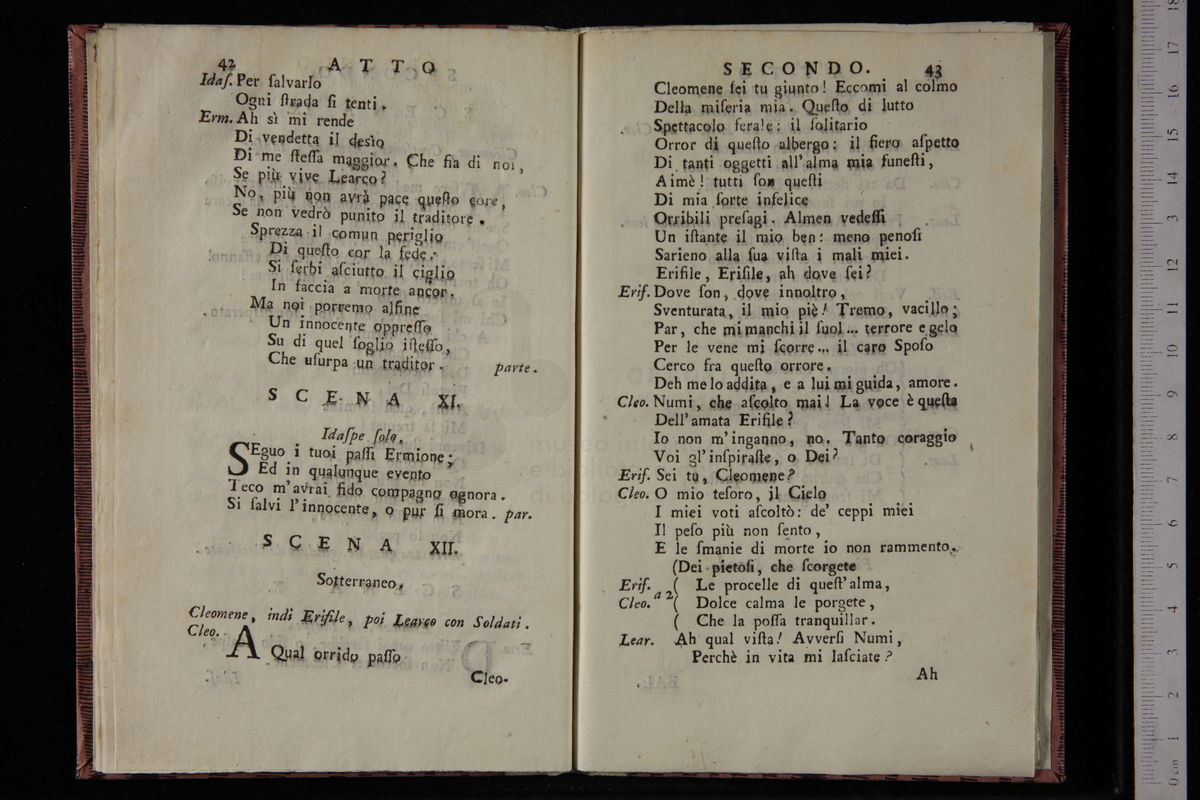 42 ATTO
Idaſ. Per ſalvarlo
Ogni ſtrada ſi tenti.
Erm. Ah sì mi rende
Di vendetta il desìo
Di me ſteſſa maggior. Che fia di noi,
Se più vive Learco?
No, più non avrà pace queſto core,
Se non vedrò punito il traditore.
Sprezza il comun periglio
Di queſto cor la fede.
Si ſerbi aſciutto il ciglio
In faccia a morte ancor.
Ma noi porremo alfine
Un innocente oppreſſo
Su di quel ſoglio iſteſſo,
Che uſurpa un traditor. parte.
SCENA XI.
Idaſpe ſolo.
SEguo i tuoi paſſi Ermione;
Ed in qualunque evento
Teco m'avrai fido compagno ognora.
Si ſalvi l'innocente, o pur ſi mora. par.
SCENA XII.
Sotterraneo.
Cleomene, indi Erifile, poi Learco con Soldati.
Cleo. A Qual orrido paſſo
Cleo-
SECONDO. 43
Cleomene ſei tu giunto! Eccomi al colmo
Della miſeria mia. Queſto di lutto
Spettacolo ferale: il ſolitario
Orror di queſto albergo: il fiero aſpetto
Di tanti oggetti all'alma mia funeſti,
Aimè! tutti ſon queſti
Di mia ſorte infelice
Orribili preſagi. Almen vedeſſi
Un iſtante il mio ben: meno penoſi
Sarieno alla ſua viſta i mali miei.
Erifile, Erifile, ah dove ſei?
Erif. Dove ſon, dove innoltro,
Sventurata, il mio piè! Tremo, vacillo;
Par, che mi manchi il ſuol... terrore e gelo
Per le vene mi ſcorre... il caro Spoſo
Cerco fra queſto orrore.
Deh me lo addita, e a lui mi guida, amore.
Cleo. Numi, che aſcolto mai! La voce è queſta
Dell'amata Erifile?
Io non m'inganno, no. Tanto coraggio
Voi gl'inſpiraſte, o Dei?
Erif. Sei tu, Cleomene?
Cleo. O mio teſoro, il Cielo
I miei voti aſcoltò: de' ceppi miei
Il peſo più non ſento,
E le ſmanie di morte io non rammento.
(Dei pietoſi, che ſcorgete
Erif. ( Le procelle di queſt'alma,
Cleo. a 2 ( Dolce calma le porgete,
( Che la poſſa tranquillar.
Lear. Ah qual viſta! Avverſi Numi,
Perchè in vita mi laſciate?
Ah